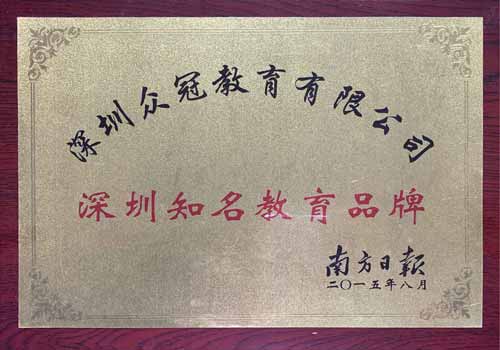 深圳众冠教育有限公司
深圳知名教育品牌
南方日報
二〇一五年八月